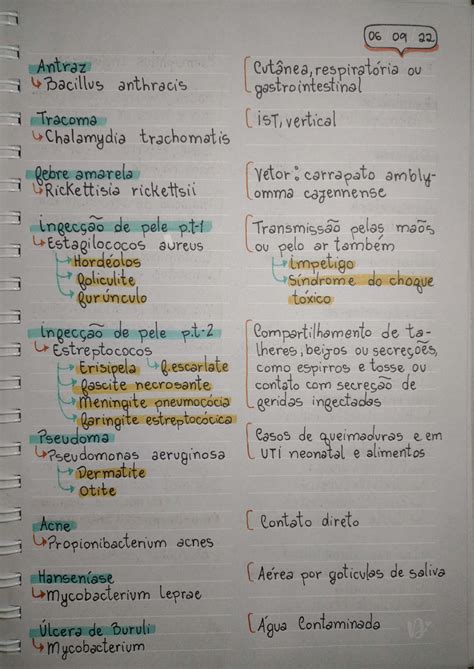 06 09 22
Antraz
↳Bacillus anthracis
Cutânea, respiratória ou
gastrointestinal
Tracoma
↳Chalamydia trachomatis
IST, vertical
febre amarela
↳Rickettisia rickettsii
Vetor: carrapato ambly-
omma cajennense
infecção de pele p.t-1
↳Estafilococos aureus
→Hordéolos
→foliculite
→furúnculo
Transmissão pelas maõs
ou pelo ar tambem
→impetigo
→Síndrome do choque
tóxico
infecção de pele p.t-2
↳Estreptococos
→Erisipela ↳f.escarlate
→fascite necrosante
→Meningite pneumocócia
→faringite estreptocócica
Compartilhamento de ta-
lheres, beijos ou secreções,
como espirros e tosse ou
contato com secreção de
feridas infectadas
Pseudoma
↳Pseudomonas aeruginosa
→Dermatite
→Otite
Casos de queimaduras e em
UTI neonatal e alimentos
Acne
↳Propionibacterium acnes
Contato direto
Hanseníase
↳Mycobacterium leprae
Aérea por goticulas de saliva
Úlcera de Buruli
↳Mycobacterium
Água Contaminada